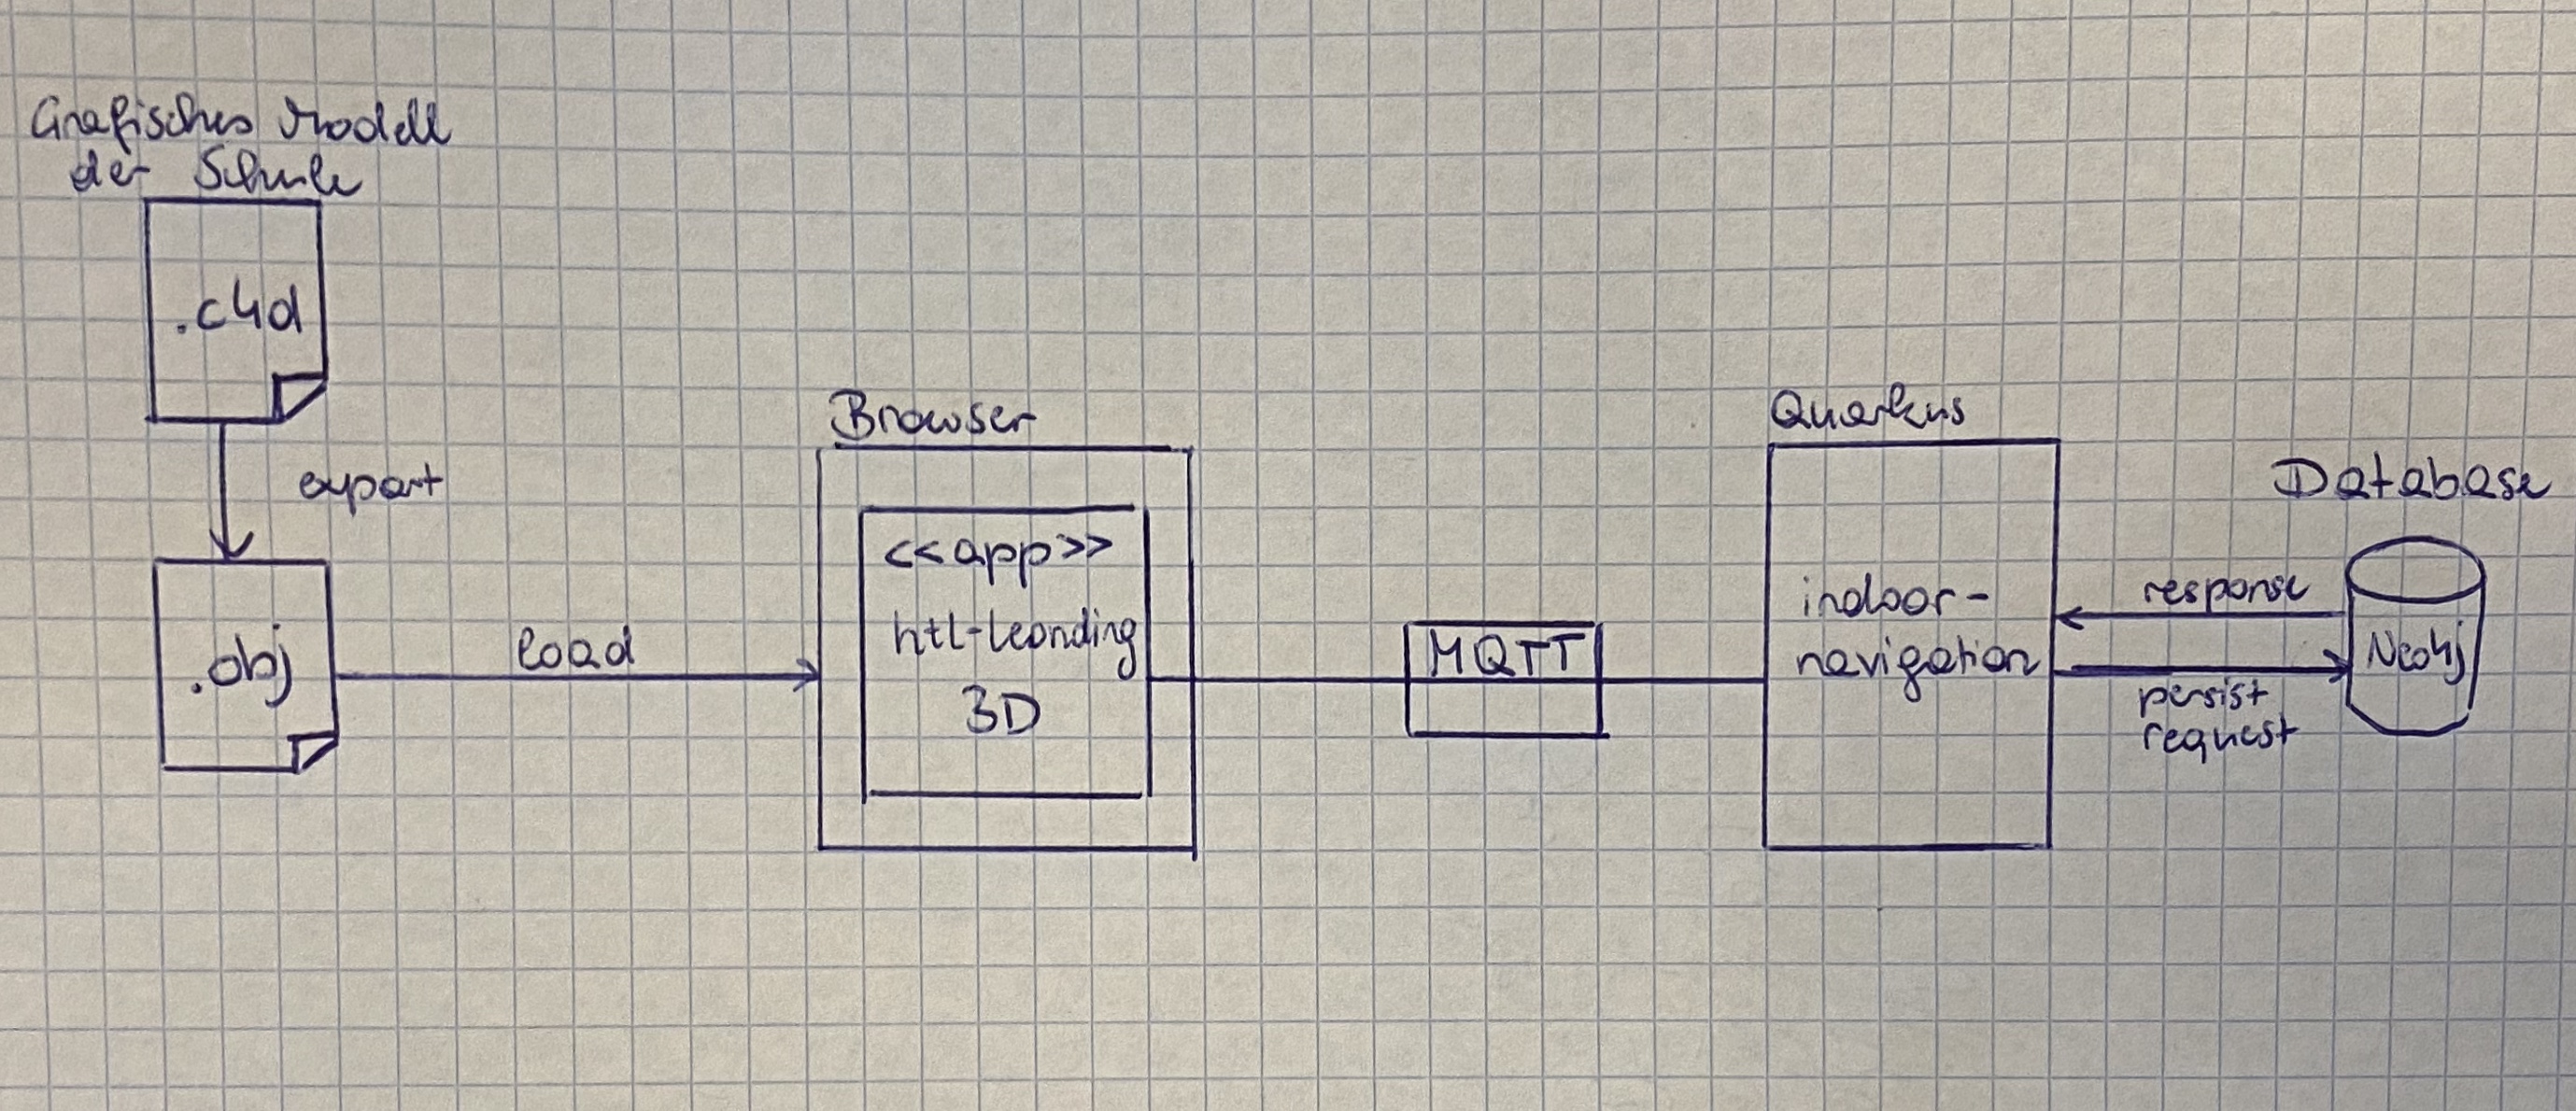 Grafisches Modell
der Schule
.c4d
export
.obj
load
Browser
<<app>>
htl-leonding
3D
MQTT
Quarkus
indoor-
navigation
response
persist
request
Database
Neo4j